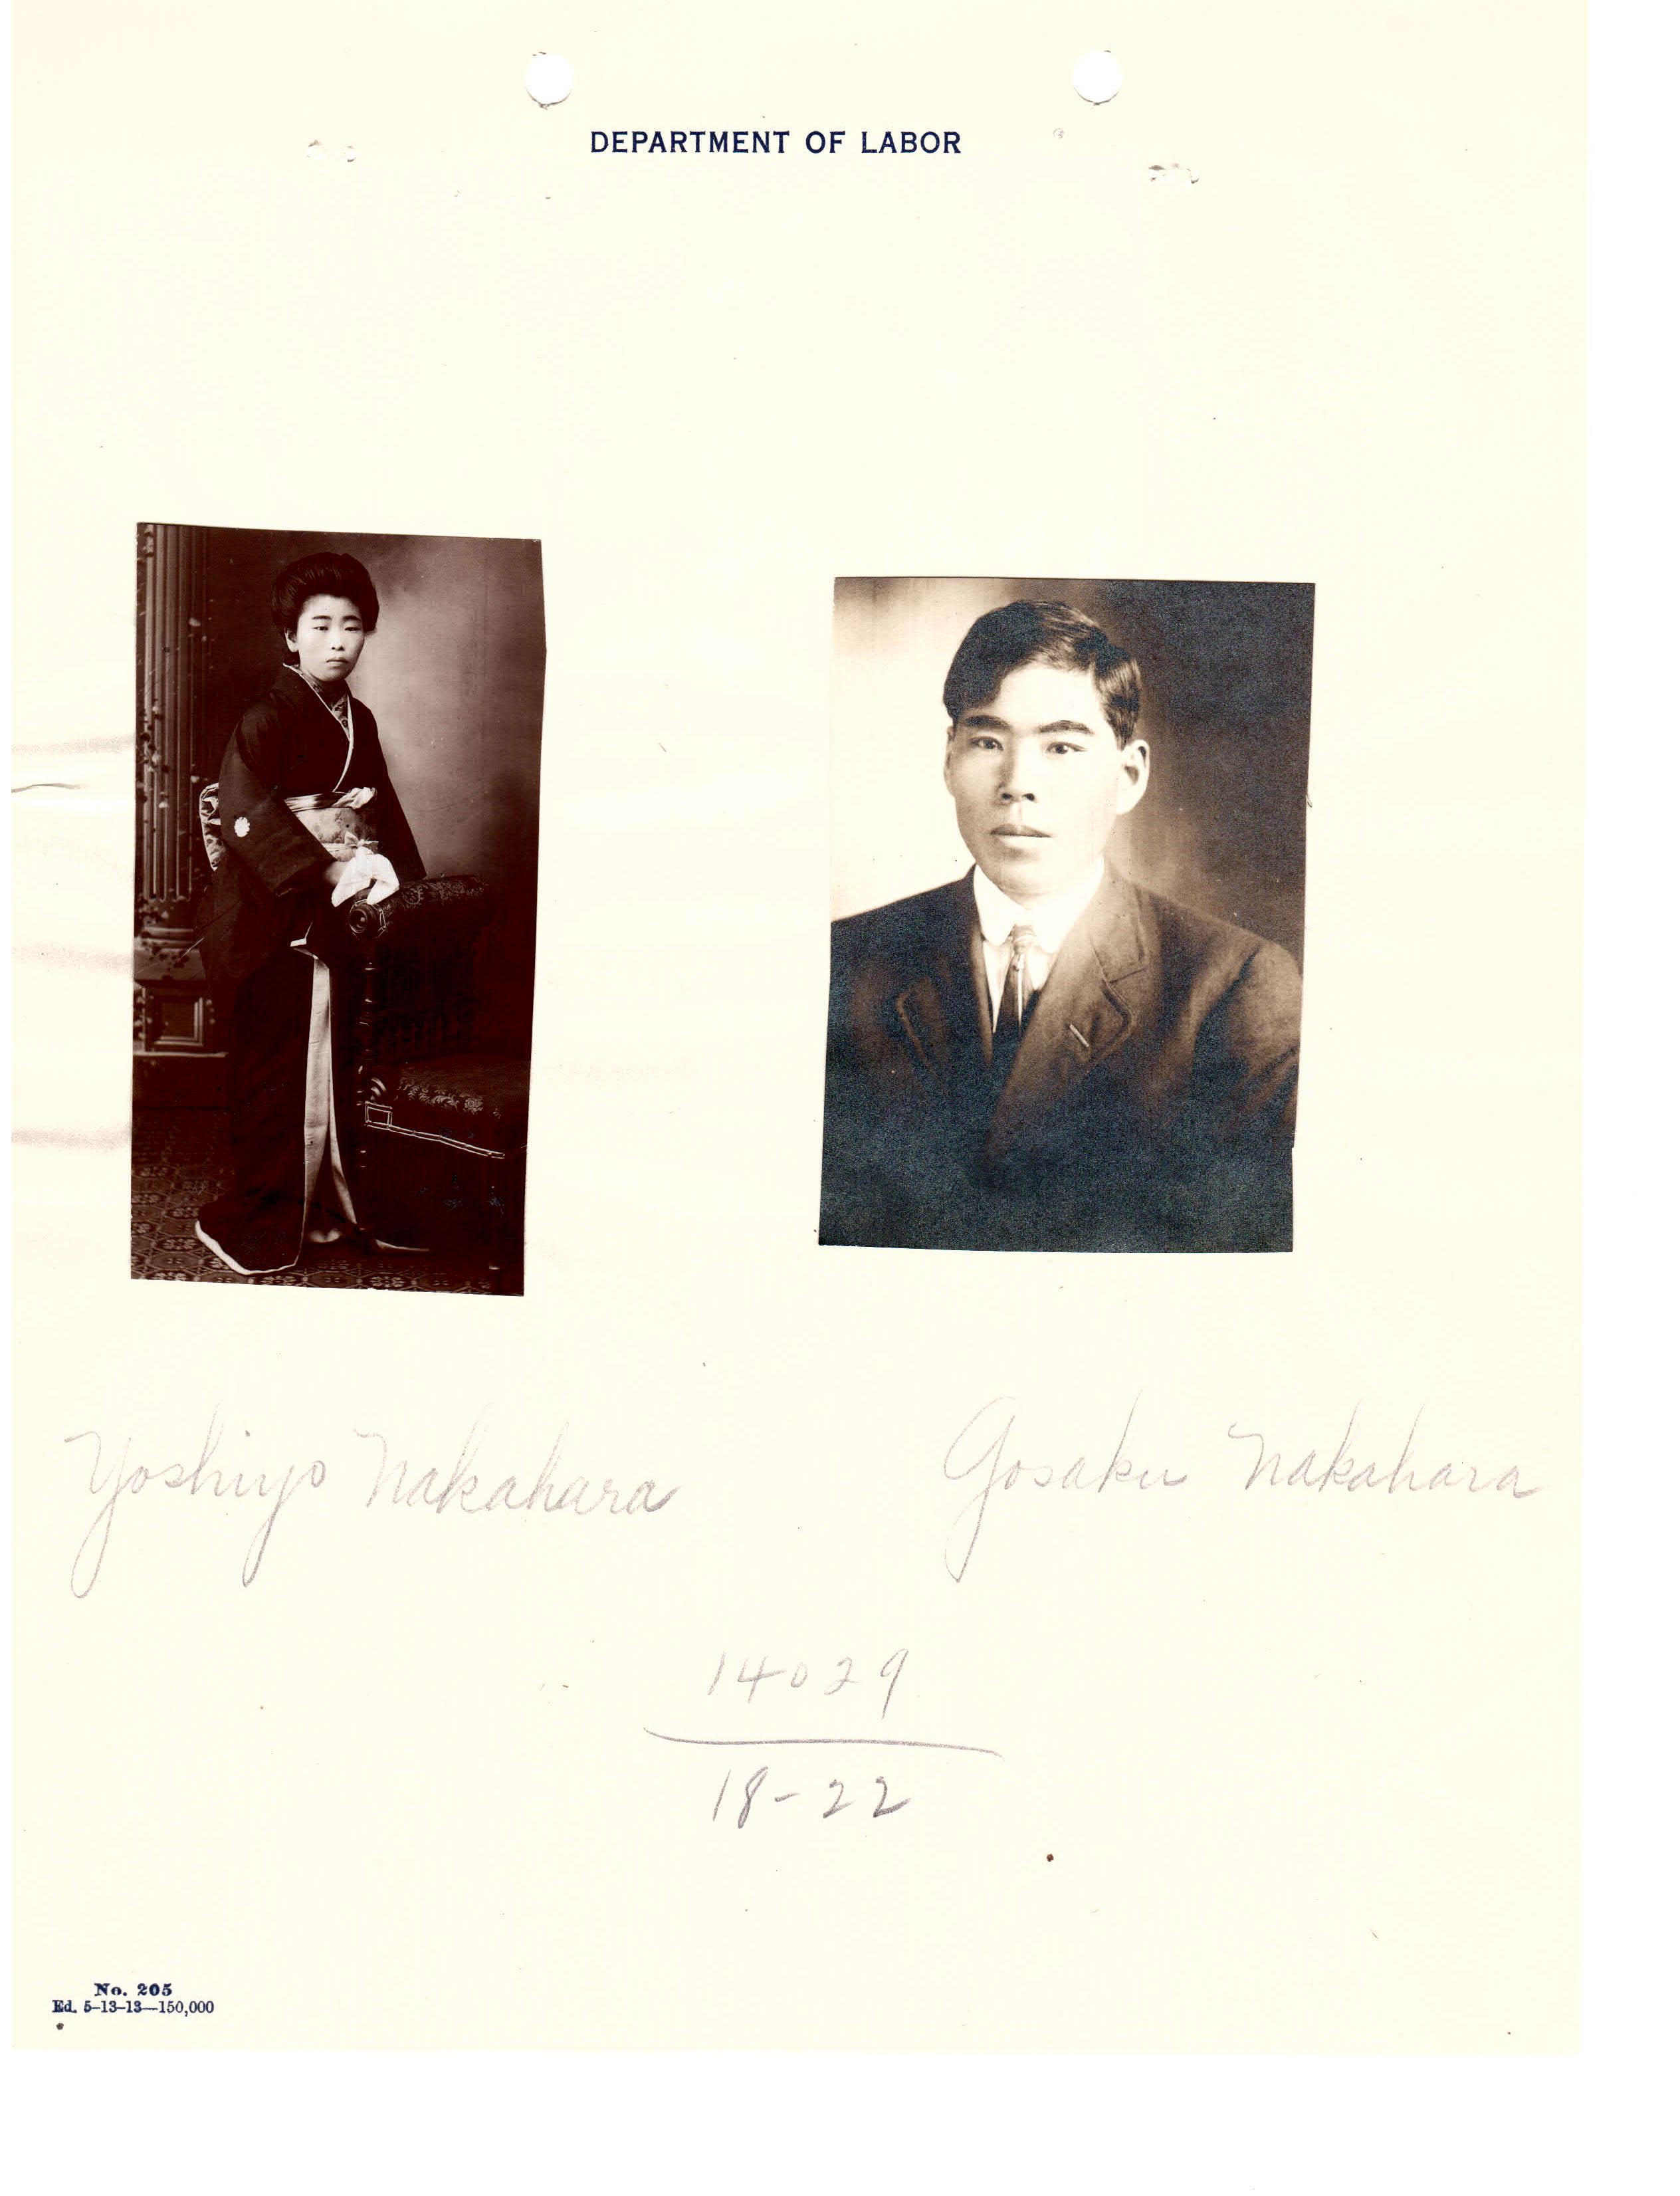 DEPARTMENT OF LABOR
Yoshiyo Nakahara
Gosaku Nakahara
14029
18-22
No. 205
Ed. 5-13-13—150,000